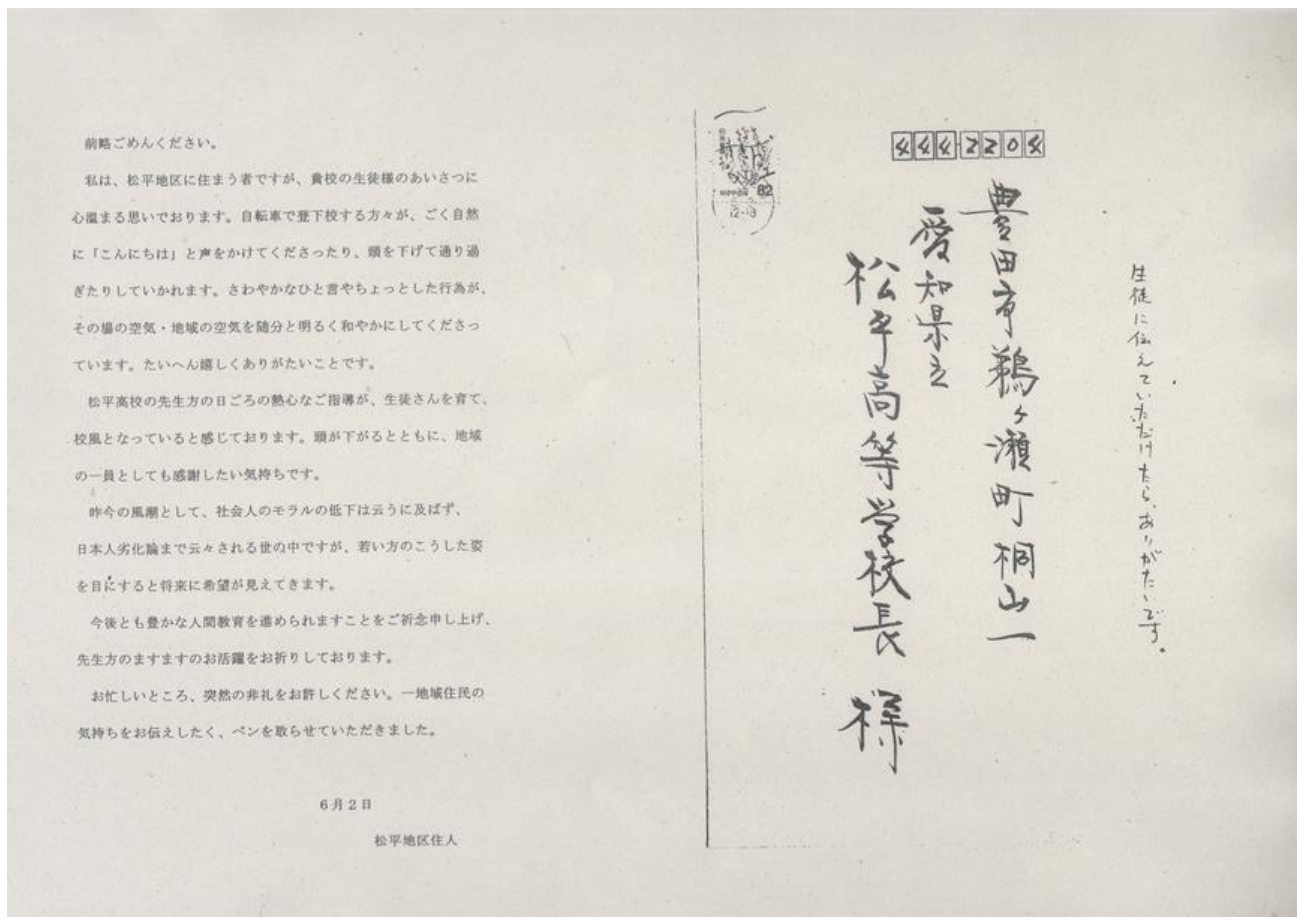 前略ごめんください。
私は、松平地区に住まう者ですが、貴校の生徒様のあいさつに
心温まる思いでおります。自転車で登下校する方々が、ごく自然
に「こんにちは」と声をかけてくださったり、頭を下げて通り過
ぎたりしていかれます。さわやかなひと言やちょっとした行為が、
その場の空気・地域の空気を随分と明るく和やかにしてくださっ
ています。たいへん嬉しくありがたいことです。
松平高校の先生方の日ごろの熱心なご指導が、生徒さんを育て、
校風となっていると感じております。頭が下がるとともに、地域
の一員としても感謝したい気持ちです。
昨今の風潮として、社会人のモラルの低下は云うに及ばず、
日本人劣化論まで云々される世の中ですが、若い方のこうした姿
を目にすると将来に希望が見えてきます。
今後とも豊かな人間教育を進められますことをご祈念申し上げ、
先生方のますますのお活躍をお祈りしております。
お忙しいところ、突然の非礼をお許しください。一地域住民の
気持ちをお伝えしたく、ペンを取らせていただきました。
6月2日
松平地区住人
生徒に伝えていただけたら、ありがたいです。
4442204
豊田市鵜ヶ瀬町桐山一
愛知県立
松平高等学校長 様
NIPPON 82
12-18